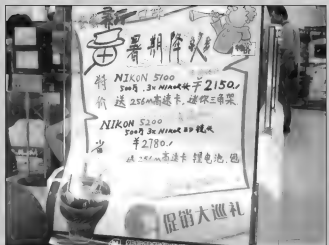 暑期降
特 NIKON 5100
500万 3X NIKOR ¥2150/
价 送 256m高速卡, 迷你三角架
NIKON 5200
500万 3X NIKOR ED 镜头
省 ¥2780/
送 256m高速卡 锂电池, 包
促销大巡礼